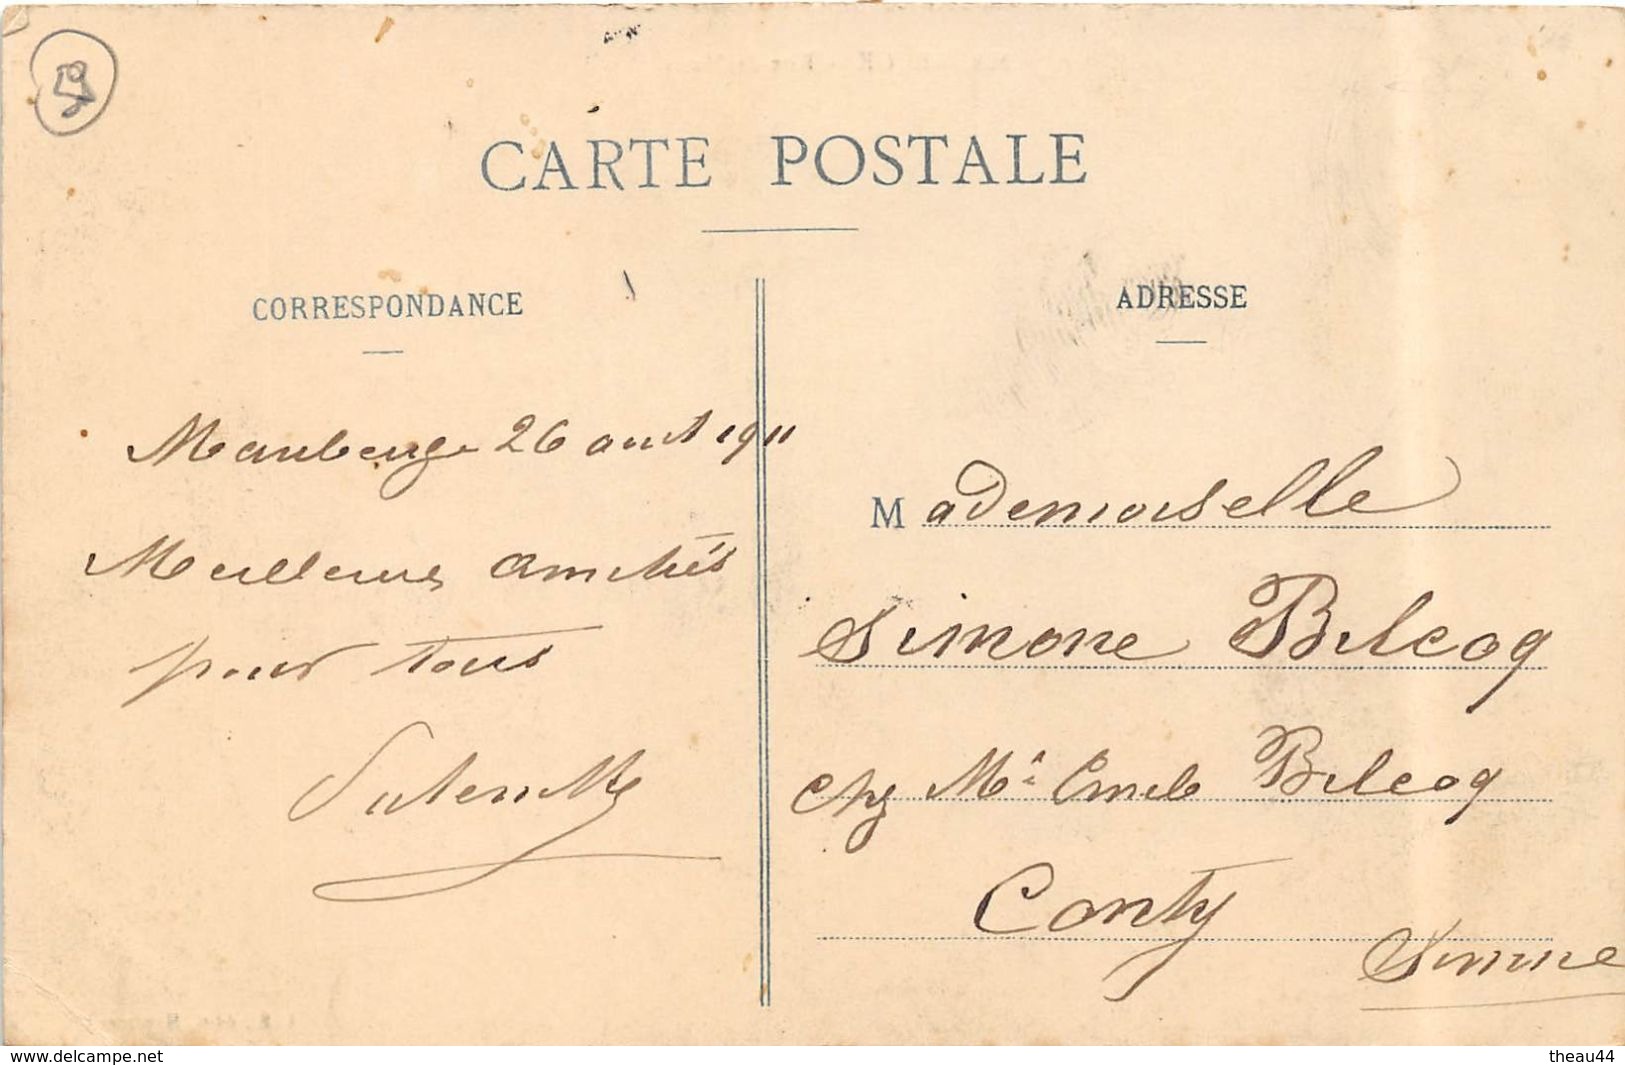 59
CARTE POSTALE
CORRESPONDANCE
Maubeuge 26 aout 1911
Meilleures amitiés
pour tous
ADRESSE
Mademoiselle
Simone Bilcoq
chez Mr Emile Bilcoq
Conty
Somme
www.delcampe.net
theau44